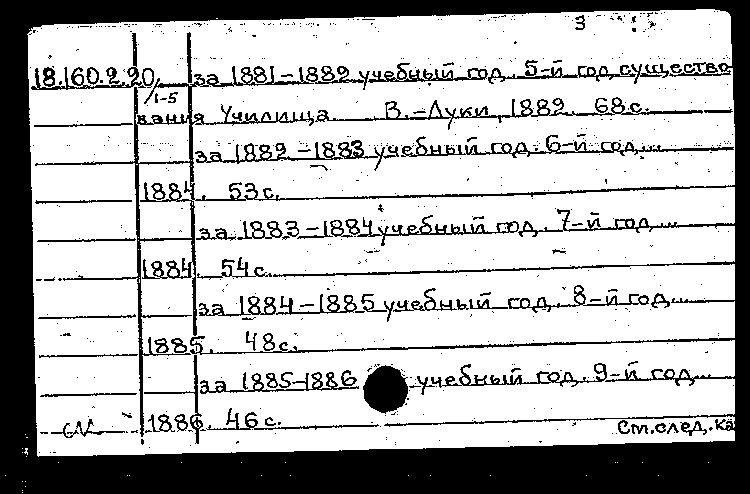 3
18.160.2.20/1-5 за 1881-1882 учебный год. 5-й год существо
вания Училища. В.-Луки, 1882. 68с.
за 1882-1883 учебный год. 6-й год...
1884. 53с.
за 1883-1884 учебный год. 7-й год...
1884. 54с.
за 1884-1885 учебный год. 8-й год...
1885. 48с.
за 1885-1886 учебный год. 9-й год...
1886. 46с.
См.след.ка